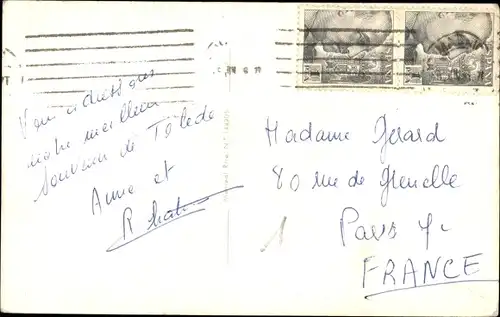 Vous adressons
notre meilleur
Souvenir de Tolède
Anne et
R
Madame Gerard
80 rue de Grenelle
Paris 7e
FRANCE